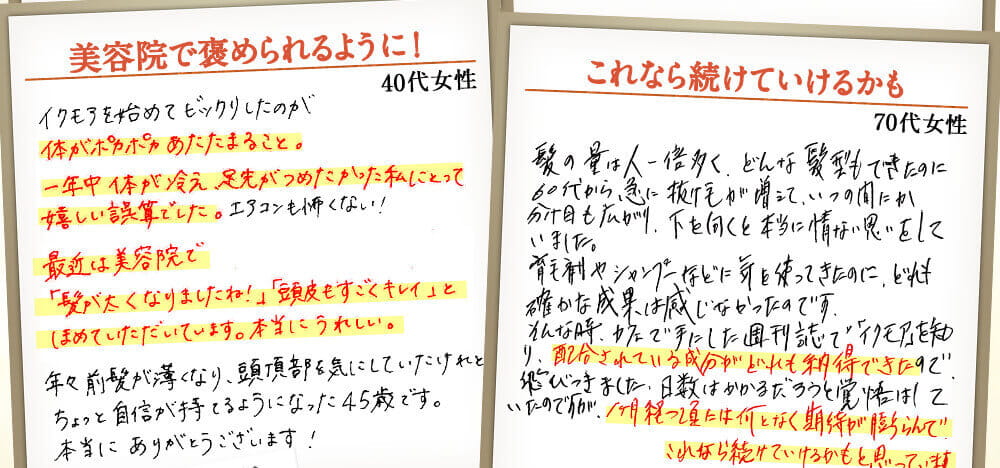 美容院で褒められるように！
40代女性
イクモアを始めてビックリしたのが
体がポカポカあたたまること。
一年中体が冷え足先がつめたかった私にとって
嬉しい誤算でした。エアコンも怖くない！
最近は美容院で
「髪が太くなりましたね！」「頭皮もすごくキレイ」と
ほめていただいています。本当にうれしい。
年々前髪が薄くなり、頭頂部を気にしていたけれど
ちょっと自信が持てるようになった45歳です。
本当にありがとうございます！
これなら続けていけるかも
70代女性
髪の量は人一倍多く、どんな髪型もできたのに
60代から急に抜け毛が増えて、いつの間にか
分け目も広がり、下を向くと本当に情ない思いをして
いました。
育毛剤やシャンプーなどに気を使ってきたのに、どれも
確かな成果は感じなかったのです。
そんな時、カフェで手にした週刊誌で「イクモア」を知
り、配合されている成分がどれも納得できたので、
飛びつきました。日数はかかるだろうと覚悟はして
いたのですが、1ヶ月経つ頃には何となく期待が膨らんで
これなら続けていけるかもと思っています